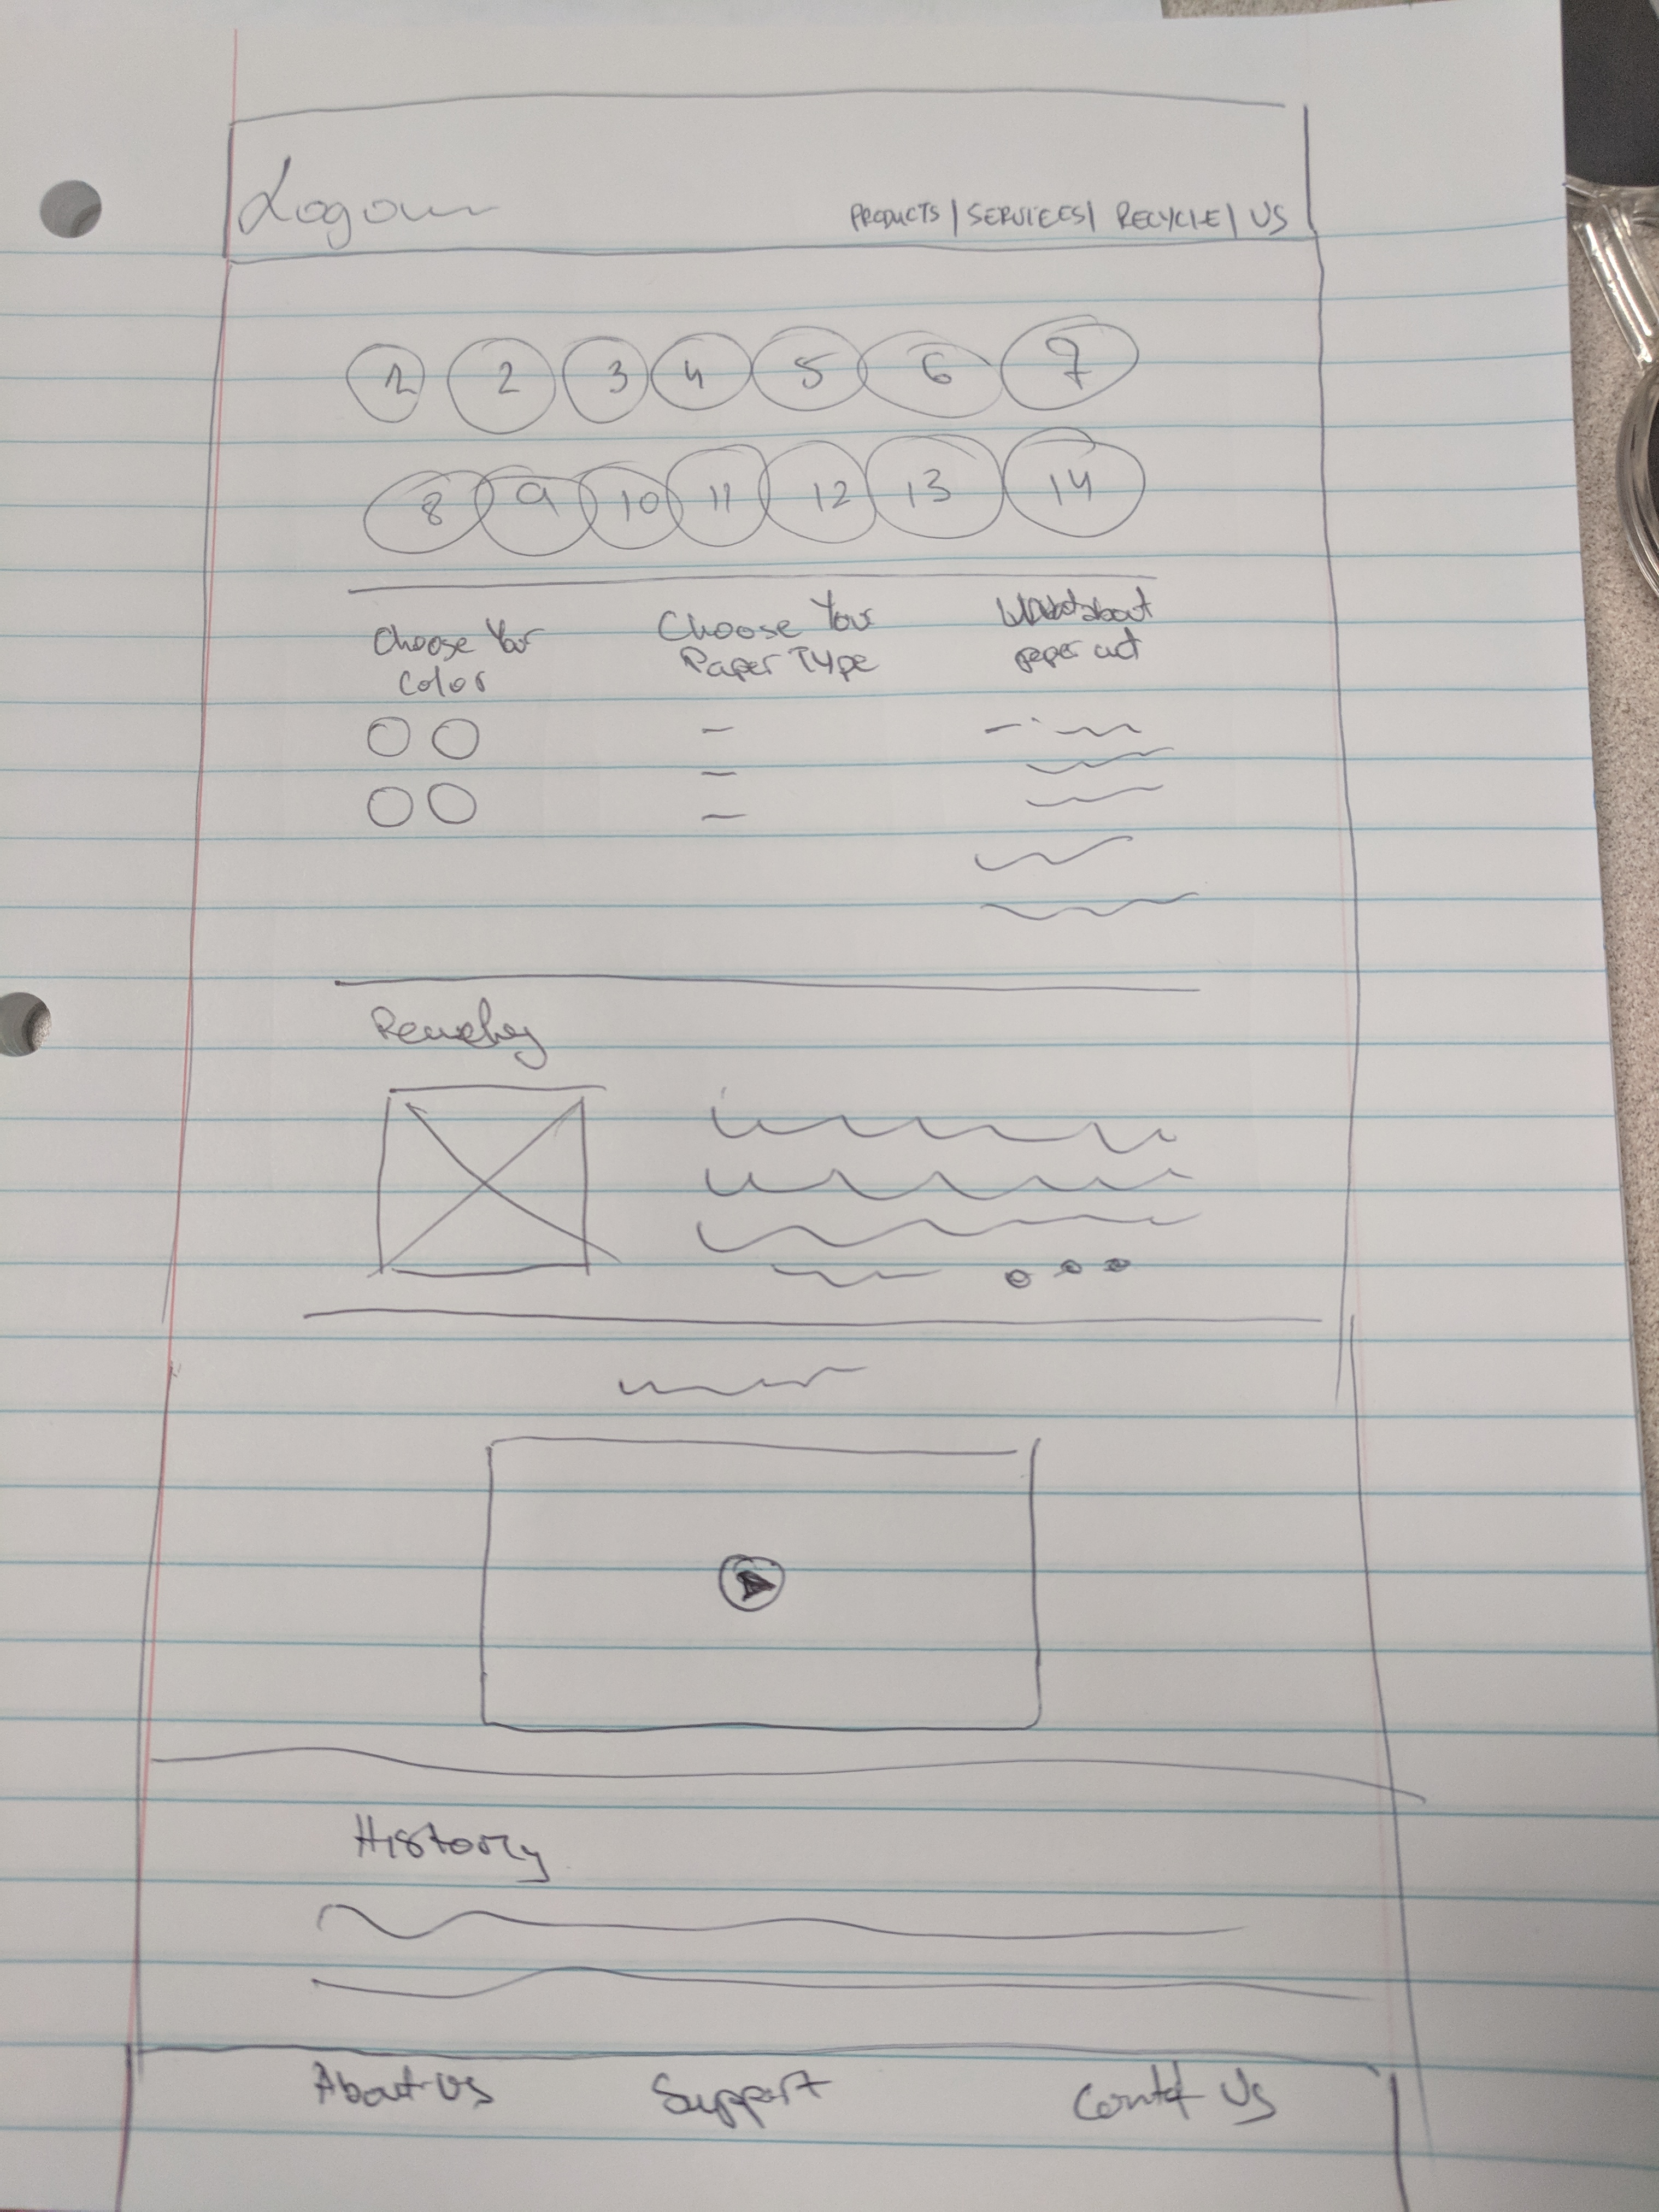 PRODUCTS | SERVICES | RECYCLE | US
1 2 3 4 5 6 7
8 9 10 11 12 13 14
Choose Your Color
Choose Your Paper Type
about paper
History
About Us Support Us